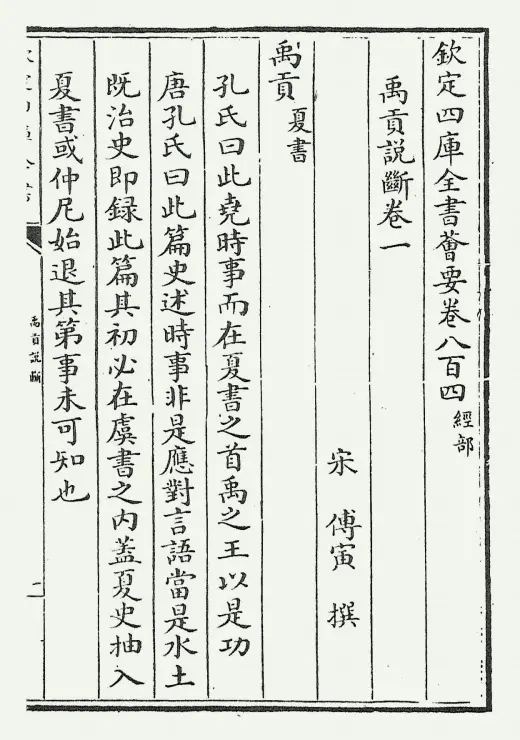 欽定四庫全書薈要卷八百四 經部
禹貢說斷卷一
宋 傅寅 撰
禹貢 夏書
孔氏曰此堯時事而在夏書之首禹之王以是功
唐孔氏曰此篇史述時事非是應對言語當是水土
既治史即録此篇其初必在虞書之内蓋夏史抽入
夏書或仲尼始退其第事未可知也
禹貢說斷